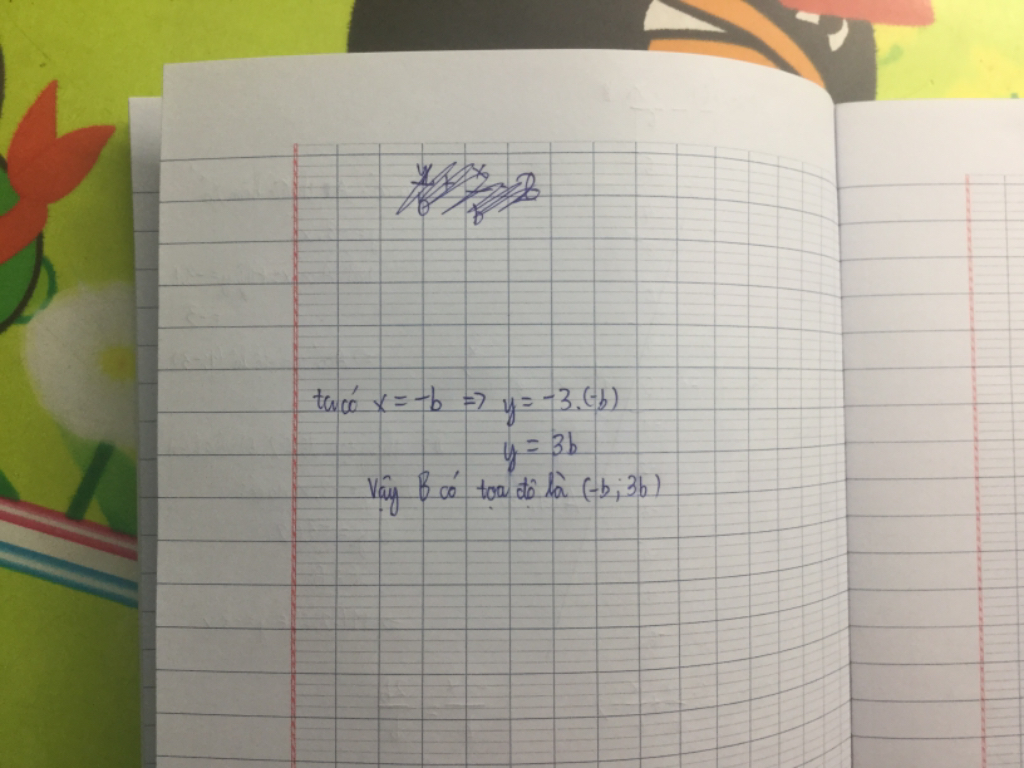 ta có x = -b => y = -3.(-b)
y = 3b
Vậy B có tọa độ là (-b; 3b)